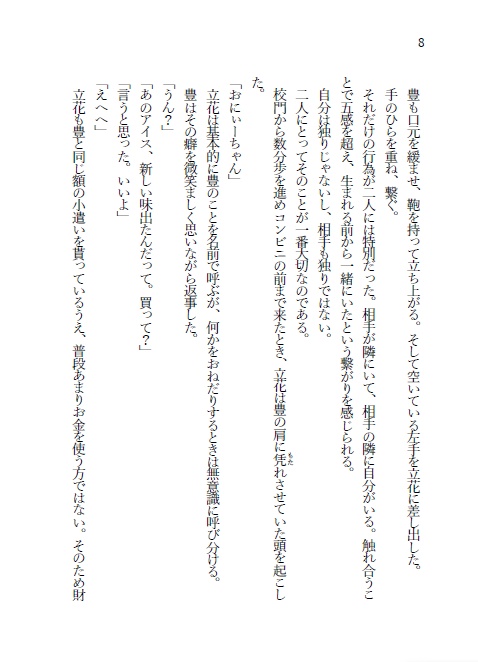 8
豊も口元を緩ませ、鞄を持って立ち上がる。そして空いている左手を立花に差し出した。
手のひらを重ね、繋ぐ。
それだけの行為が二人には特別だった。相手が隣にいて、相手の隣に自分がいる。触れ合うこ
とで五感を超え、生まれる前から一緒にいたという繋がりを感じられる。
自分は独りじゃないし、相手も独りではない。
二人にとってそのことが一番大切なのである。
校門から数分歩を進めコンビニの前まで来たとき、立花は豊の肩に凭れさせていた頭を起こし
た。
「おにぃーちゃん」
立花は基本的に豊のことを名前で呼ぶが、何かをおねだりするときは無意識に呼び分ける。
豊はその癖を微笑ましく思いながら返事した。
「うん？」
「あのアイス、新しい味出たんだって。買って？」
「言うと思った。いいよ」
「えへへ」
立花も豊と同じ額の小遣いを貰っているうえ、普段あまりお金を使う方ではない。そのため財